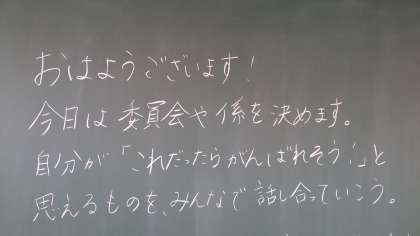 おはようございます!
今日は委員会や係を決めます。
自分が「これだったらがんばれそう!」と
思えるものを、みんなで話し合っていこう。